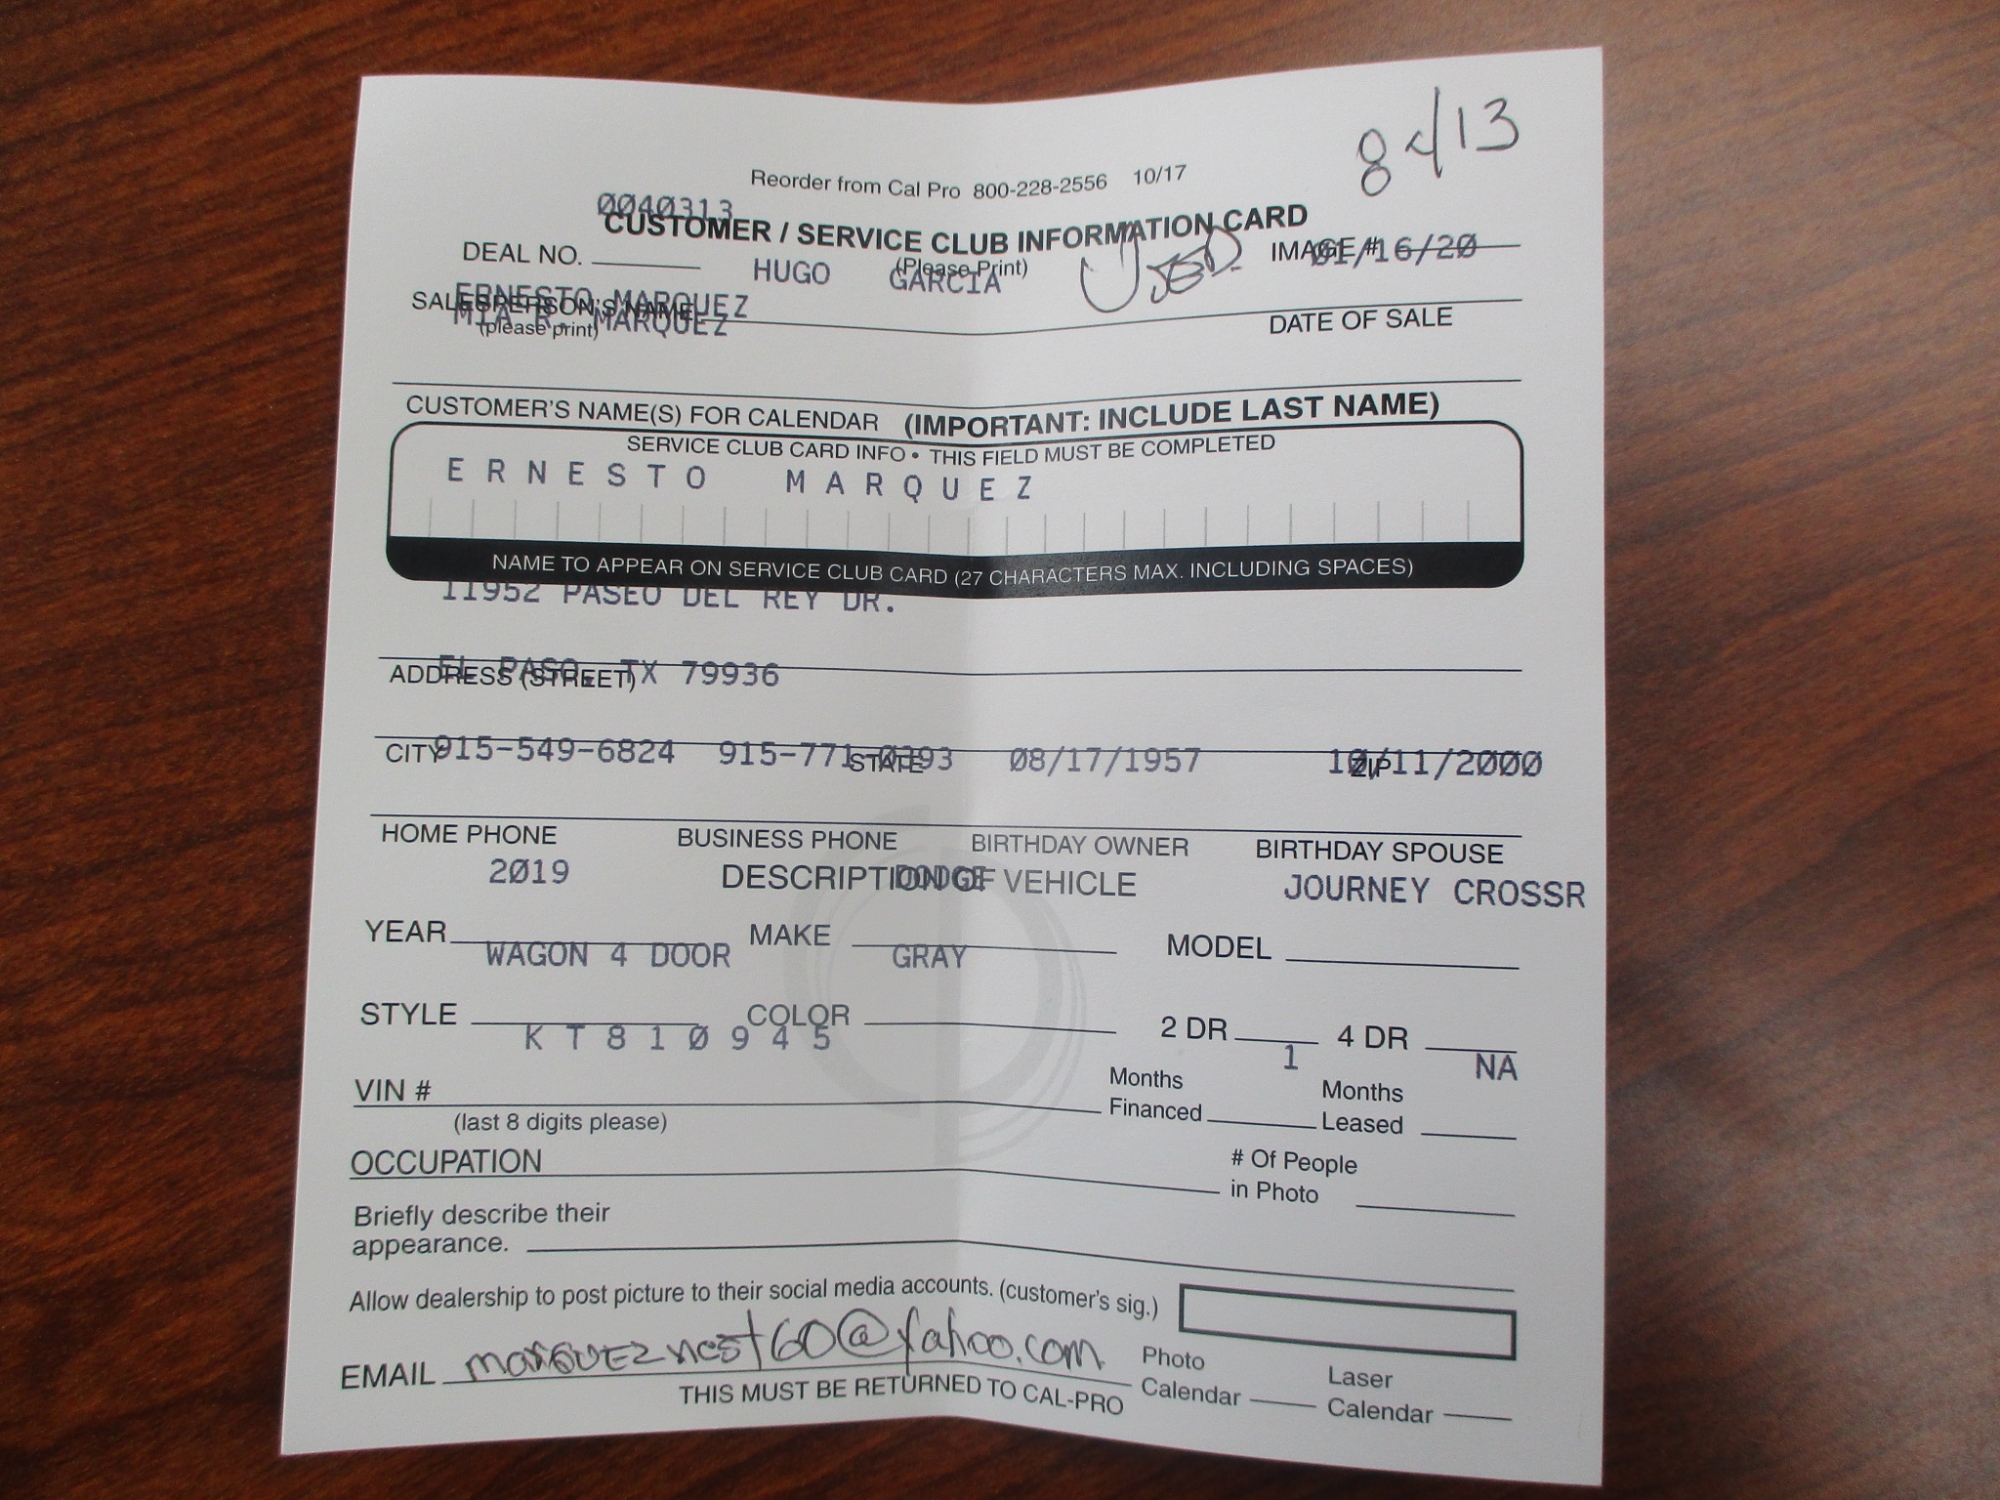 8413
Reorder from Cal Pro 800-228-2556 10/17
0040313
CUSTOMER / SERVICE CLUB INFORMATION CARD
DEAL NO. HUGO GARCIA (Please Print) USED IMAGE # 01/16/20
ERNESTO MARQUEZ
SALESPERSON'S NAME
MIA R. MARQUEZ
(please print) DATE OF SALE
CUSTOMER'S NAME(S) FOR CALENDAR (IMPORTANT: INCLUDE LAST NAME)
SERVICE CLUB CARD INFO • THIS FIELD MUST BE COMPLETED
ERNESTO MARQUEZ
NAME TO APPEAR ON SERVICE CLUB CARD (27 CHARACTERS MAX. INCLUDING SPACES)
11952 PASEO DEL REY DR.
EL PASO, TX 79936
ADDRESS (STREET)
915-549-6824 915-771-0393 08/17/1957 10/11/2000
CITY STATE ZIP
HOME PHONE BUSINESS PHONE BIRTHDAY OWNER BIRTHDAY SPOUSE
2019 DODGE JOURNEY CROSSR
DESCRIPTION OF VEHICLE
YEAR MAKE MODEL
WAGON 4 DOOR GRAY
STYLE COLOR 2 DR 4 DR
KT810945 1 NA
VIN # Months Financed Months Leased
(last 8 digits please)
OCCUPATION # Of People in Photo
Briefly describe their
appearance.
Allow dealership to post picture to their social media accounts. (customer's sig.)
EMAIL marqueznest60@yahoo.com Photo Calendar Laser Calendar
THIS MUST BE RETURNED TO CAL-PRO